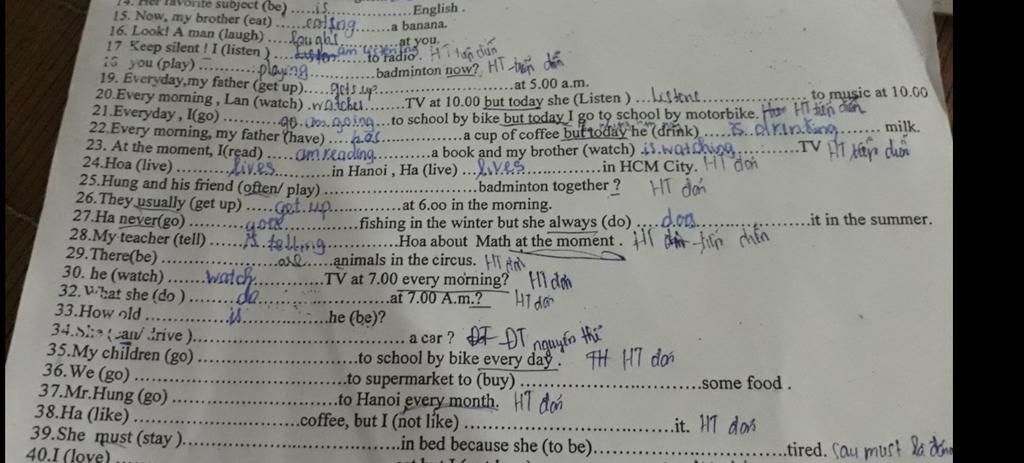 14. Her favorite subject (be) ....is...............English .
15. Now, my brother (eat) .....eating...........a banana.
16. Look! A man (laugh) .....laughs..........at you.
17 Keep silent ! I (listen ) ......am listening......to radio. HT tiếp diễn
you (play) .............playing..............badminton now? HT tiếp diễn
19. Everyday,my father (get up)......gets up..................at 5.00 a.m.
20.Every morning , Lan (watch) ..watches.......TV at 10.00 but today she (Listen ) ...listens................ to music at 10.00
21.Everyday , I(go) ..........go..........to school by bike but today I go to school by motorbike. HT tiếp diễn
22.Every morning, my father (have) .....has................a cup of coffee but today he (drink) .....is drinking......... milk.
23. At the moment, I(read) .....am reading..........a book and my brother (watch) .is watching...........TV HT tiếp diễn
24.Hoa (live) ..........lives............in Hanoi , Ha (live) ...lives.............in HCM City. HT đơn
25.Hung and his friend (often/ play) ..........................badminton together ? HT đơn
26.They usually (get up) ......get up..............at 6.oo in the morning.
27.Ha never(go) ..............goes...............fishing in the winter but she always (do) .....does....................it in the summer.
28.My teacher (tell) ......is telling.............Hoa about Math at the moment . HT tiếp diễn
29.There(be) .....................are......animals in the circus. HT đơn
30. he (watch) .......watch...........TV at 7.00 every morning? HT đơn
32.What she (do ) ........do.................at 7.00 A.m.? HT đơn
33.How old ..............is...............he (be)?
34.She (can/ drive )................................... a car ? ĐT nguyên thể
35.My children (go) .........................to school by bike every day . HT đơn
36.We (go) ...................................to supermarket to (buy) ..............................some food .
37.Mr.Hung (go) ............................to Hanoi every month. HT đơn
38.Ha (like) ..........................coffee, but I (not like) ..................................it. HT đơn
39.She must (stay )...................................in bed because she (to be)................................tired. sau must là
40.I (love)